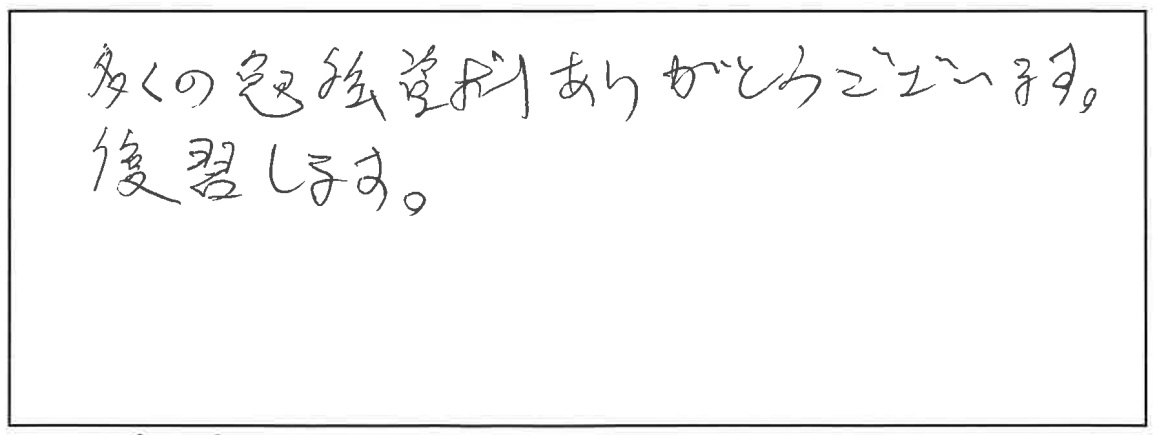 多くの勉強資料ありがとうございます。
復習します。